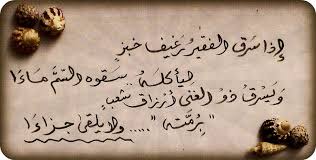 إذا سرق الفقير رغيف خبز
ليأكله سقوه السّم ماءا
ويسرق ذو الغنى أرزاق شعب
"برمته" .... ولا يلقى جزاءا